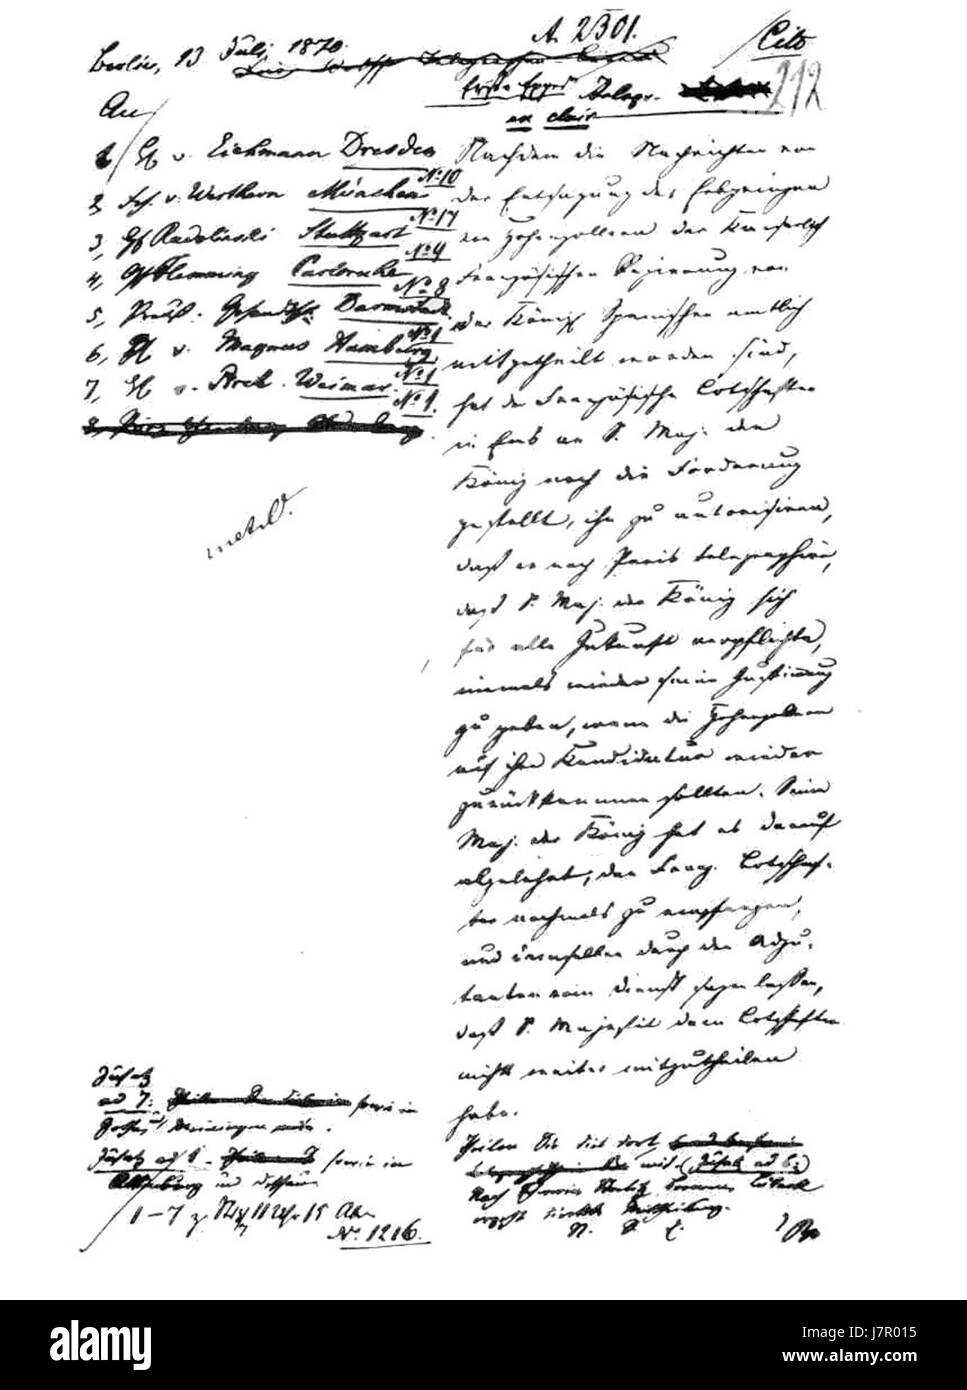 Berlin, 13 Juli 1870.
A. 2301.
Cito
212
Telegr.
en clair
An
1, v. Eichmann Dresden
No 10
2, v. Werthern München
No 17
3, Gf Radolinski Stuttgart
No 9
4, Gf Flemming Carlsruhe
No 8
5, Preuß. Darmstadt
No 1
6, v. Magnus Hamburg
No 1
7, Weimar.
No 1.
Nachdem die Nachrichten von
der Entsagung des Erbprinzen
von Hohenzollern der Kaiserlich
Französischen Regierung von
der König Spanischen amtlich
mitgetheilt worden sind,
hat der Französische Botschafter
in Ems an S. Maj. den
König noch die Forderung
gestellt, ihn zu autorisiren,
daß er nach Paris telegraphire,
daß S. Maj. der König sich
für alle Zukunft verpflichte,
niemals wieder seine Zustimmung
zu geben, wenn die Hohenzollern
auf ihre Kandidatur wieder
zurückkommen sollten. Seine
Maj. der König hat es darauf
abgelehnt, den Franz. Botschaf-
ter nochmals zu empfangen,
und demselben durch den Adju-
tanten vom Dienst sagen lassen,
daß S. Majestät dem Botschafter
nichts weiter mitzutheilen
habe.
Zusatz
ad 7: sowie in
Gotha, Meiningen
Zusatz ad 1 sowie in
Altenburg und Dessau
1-7 z. 11 Uhr 15
No. 1216.
Theilen Sie dies dort
mit (Zusatz ad 6:
Nach Lübeck
ergeht direkte Mittheilung.
N. S. E.
alamy
Image ID: J7R015
www.alamy.com